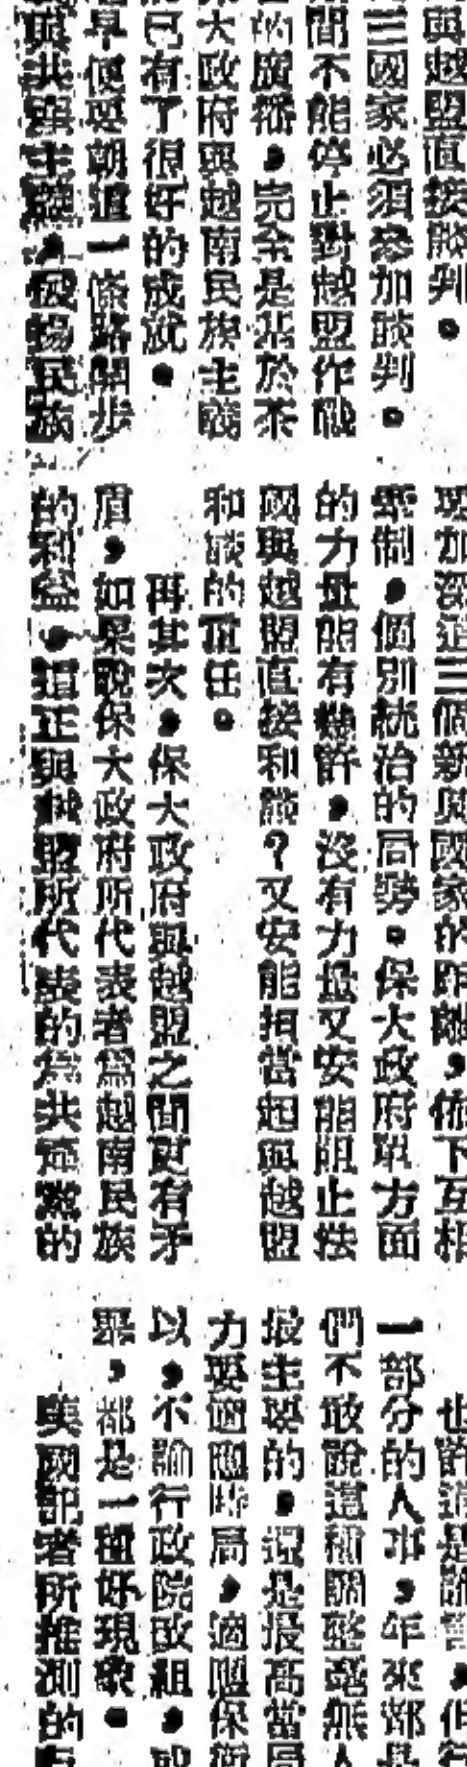 與越盟直接談判。
三國家必須參加談判。
間不能停止對越盟作戰
的廣播,完全是基於不
大政府與越南民族主義
已有了很好的成就。
早便要朝這一條路開步
與共產主義,發揚民族
加深這三個新興國家的距離,依下互相
牽制,個別統治的局勢。保大政府單方面
的力量能有幾許,沒有力量又安能阻止法
國與越盟直接和談?又安能担當起與越盟
和談的責任。
再其次,保大政府與越盟之間更有矛
盾,如果說保大政府所代表者爲越南民族
的利益,這正與越盟所代表的爲共產黨的
也許這是
一部分的人事,年來都是
們不敢說這種調整毫無人
最主要的,還是最高當局
力要適應時局,適應保衛
以,不論行政院改組,或
,都是一種好現象。
美國記者所推測的